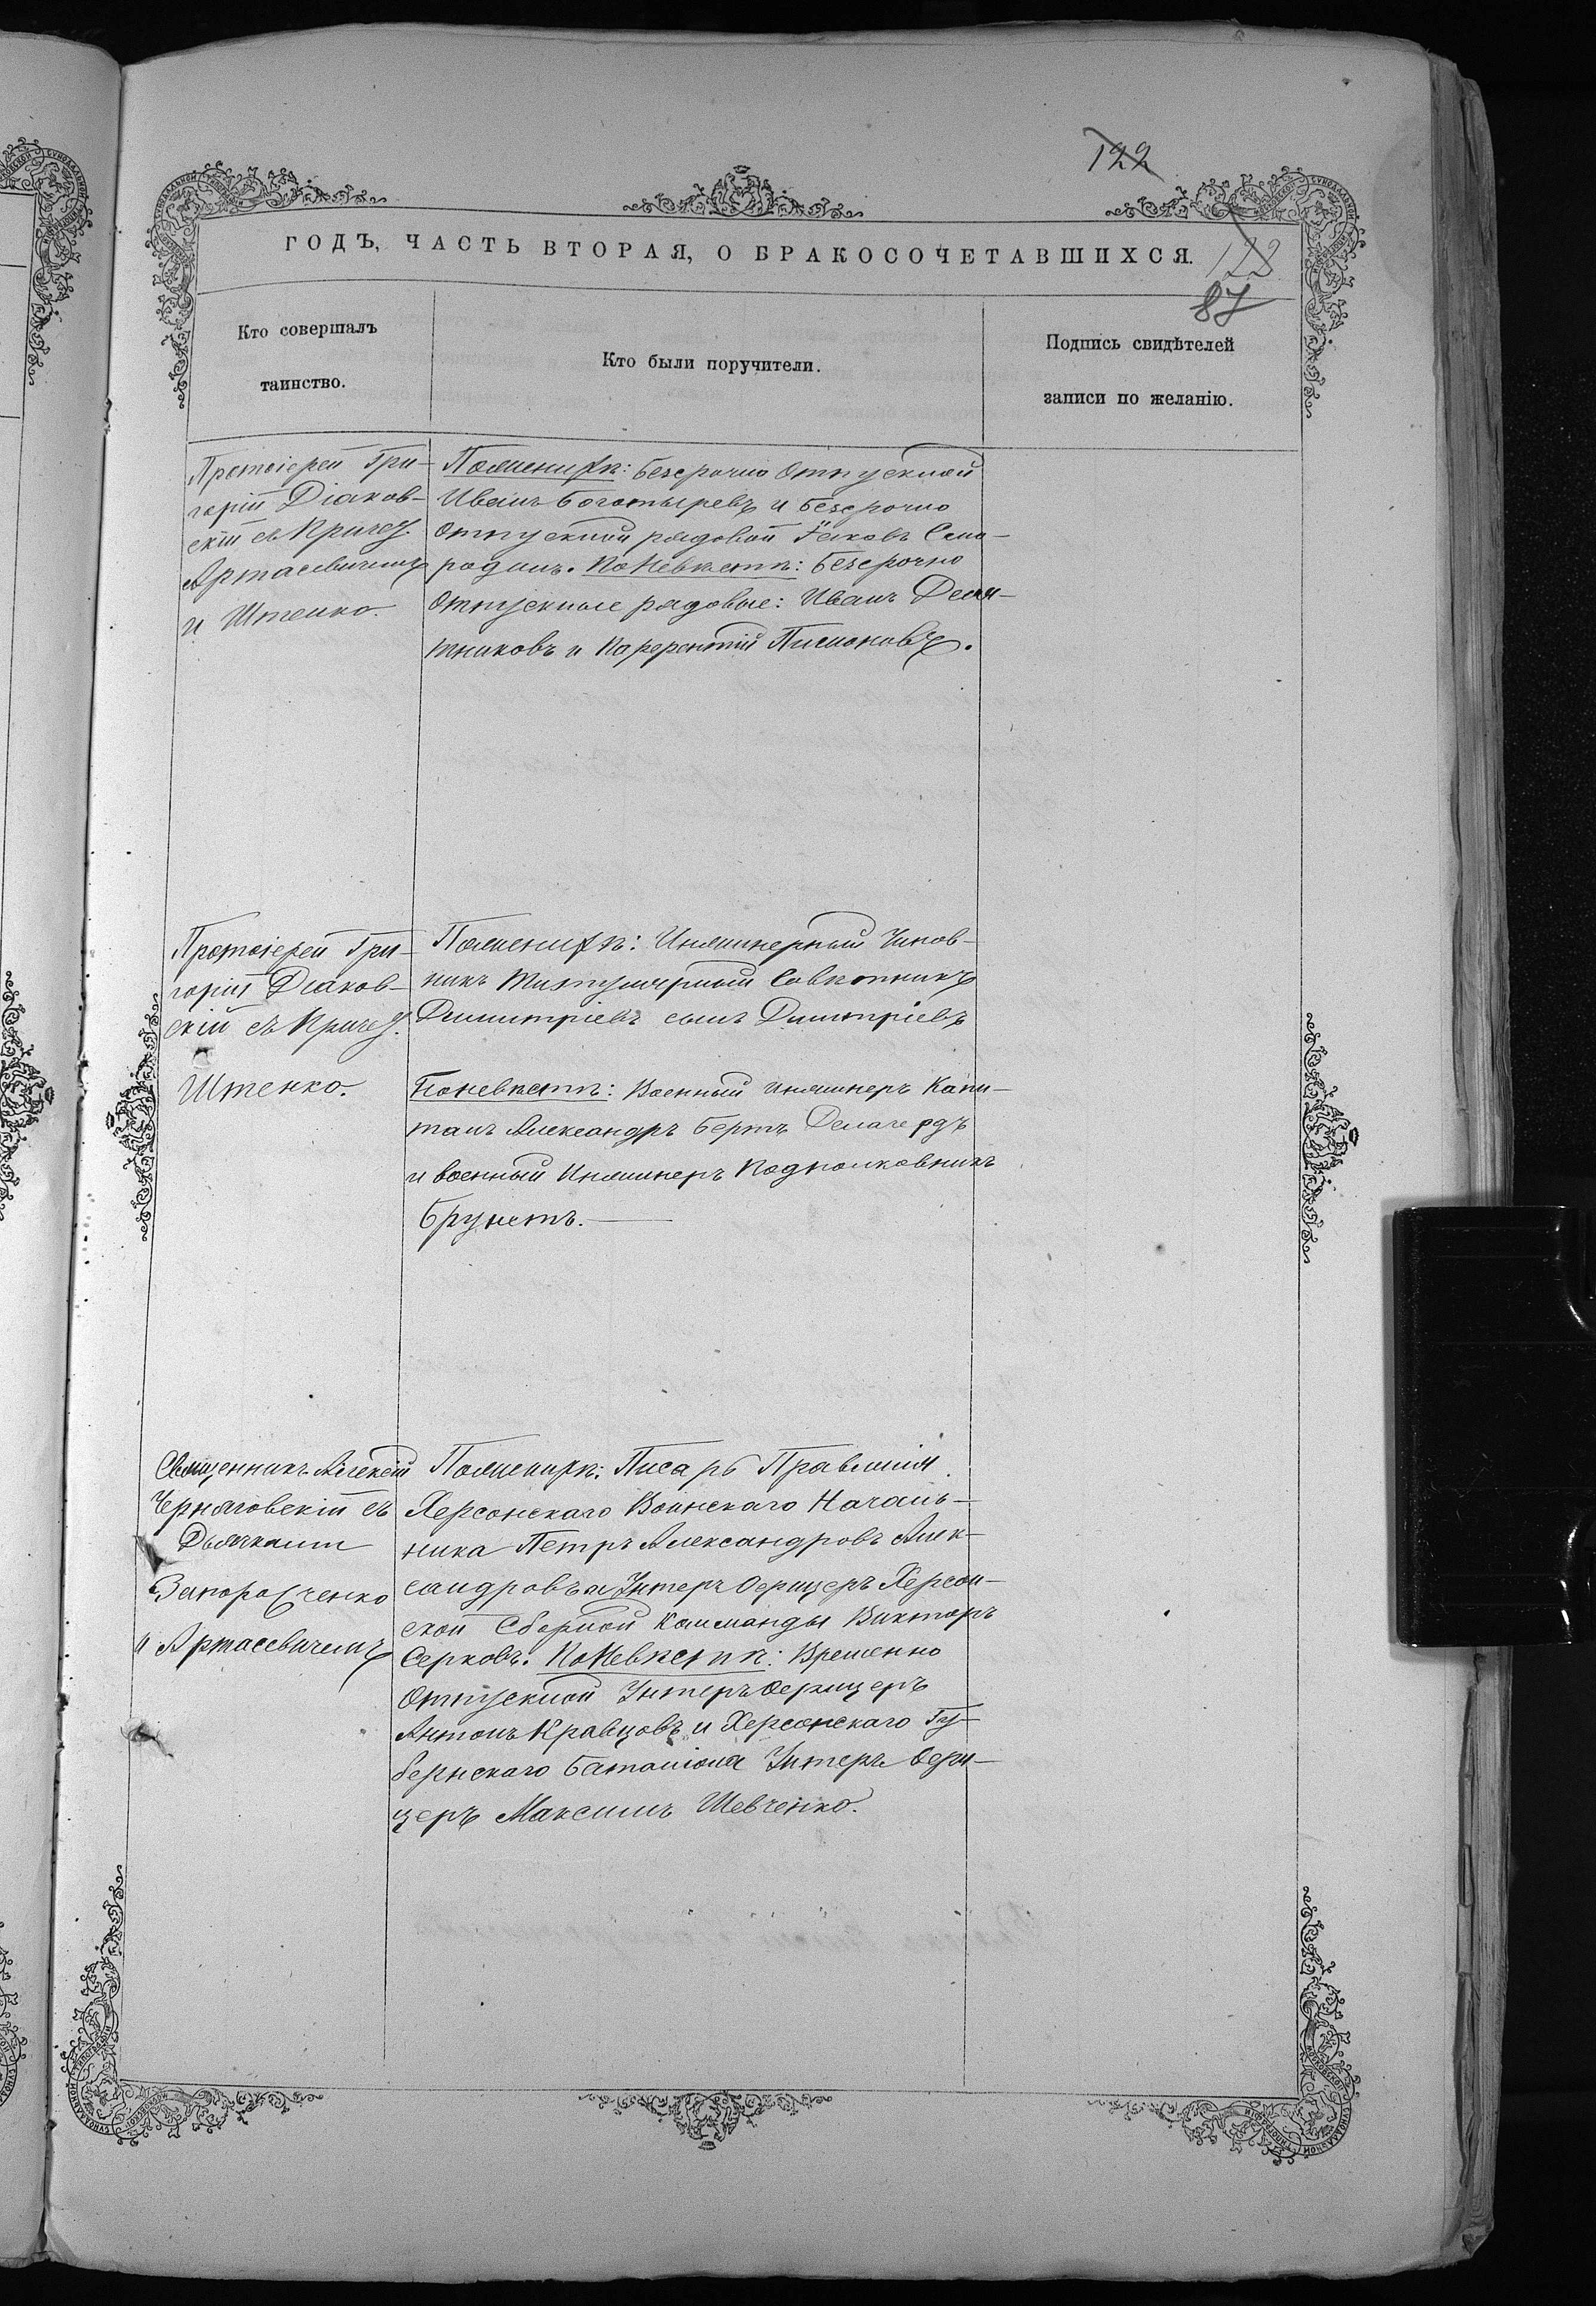 122
ГОДЪ, ЧАСТЬ ВТОРАЯ, О БРАКОСОЧЕТАВШИХСЯ.
123
87
Кто совершалъ
таинство.
Кто были поручители.
Подпись свидѣтелей
записи по желанію.
Протоіерей Гри-
горій Діаков-
скій съ Причет.
Артасевичемъ
и Штенко.
Поженихѣ: Безсрочно Отпускной
Иванъ Богатыревъ и Безсрочно
Отпускной рядовой Яковъ Смо-
родинъ. Поневѣстѣ: Безсрочно
Отпускные рядовые: Иванъ
тниковъ и Пимоновъ.
Протоіерей Гри-
горій Діаков-
скій съ Причет.
Штенко.
Поженихѣ: Инженерный Чинов-
никъ Титулярный Совѣтникъ
Димитріевъ сынъ Димитріевъ
Поневѣстѣ: Военный инженеръ Капи-
танъ Александръ Бертъ
и военный Инженеръ Подполковникъ
Брунетъ.
Священникъ Алексій
Черняговскій съ
Дьячками
Запорощенко
и Артасевичемъ
Поженихѣ: Писарь Правленія
Херсонскаго Воинскаго Началь-
ника Петръ Александровъ Алек-
сандровъ и Унтеръ Офицеръ Херсон-
ской Сборной Комманды Викторъ
Серковъ. Поневѣстѣ: Временно
Отпускной Унтеръ Офицеръ
Антонъ Кравцовъ и Херсонскаго Гу-
бернскаго Баталіона Унтеръ Офи-
церъ Максимъ Шевченко.